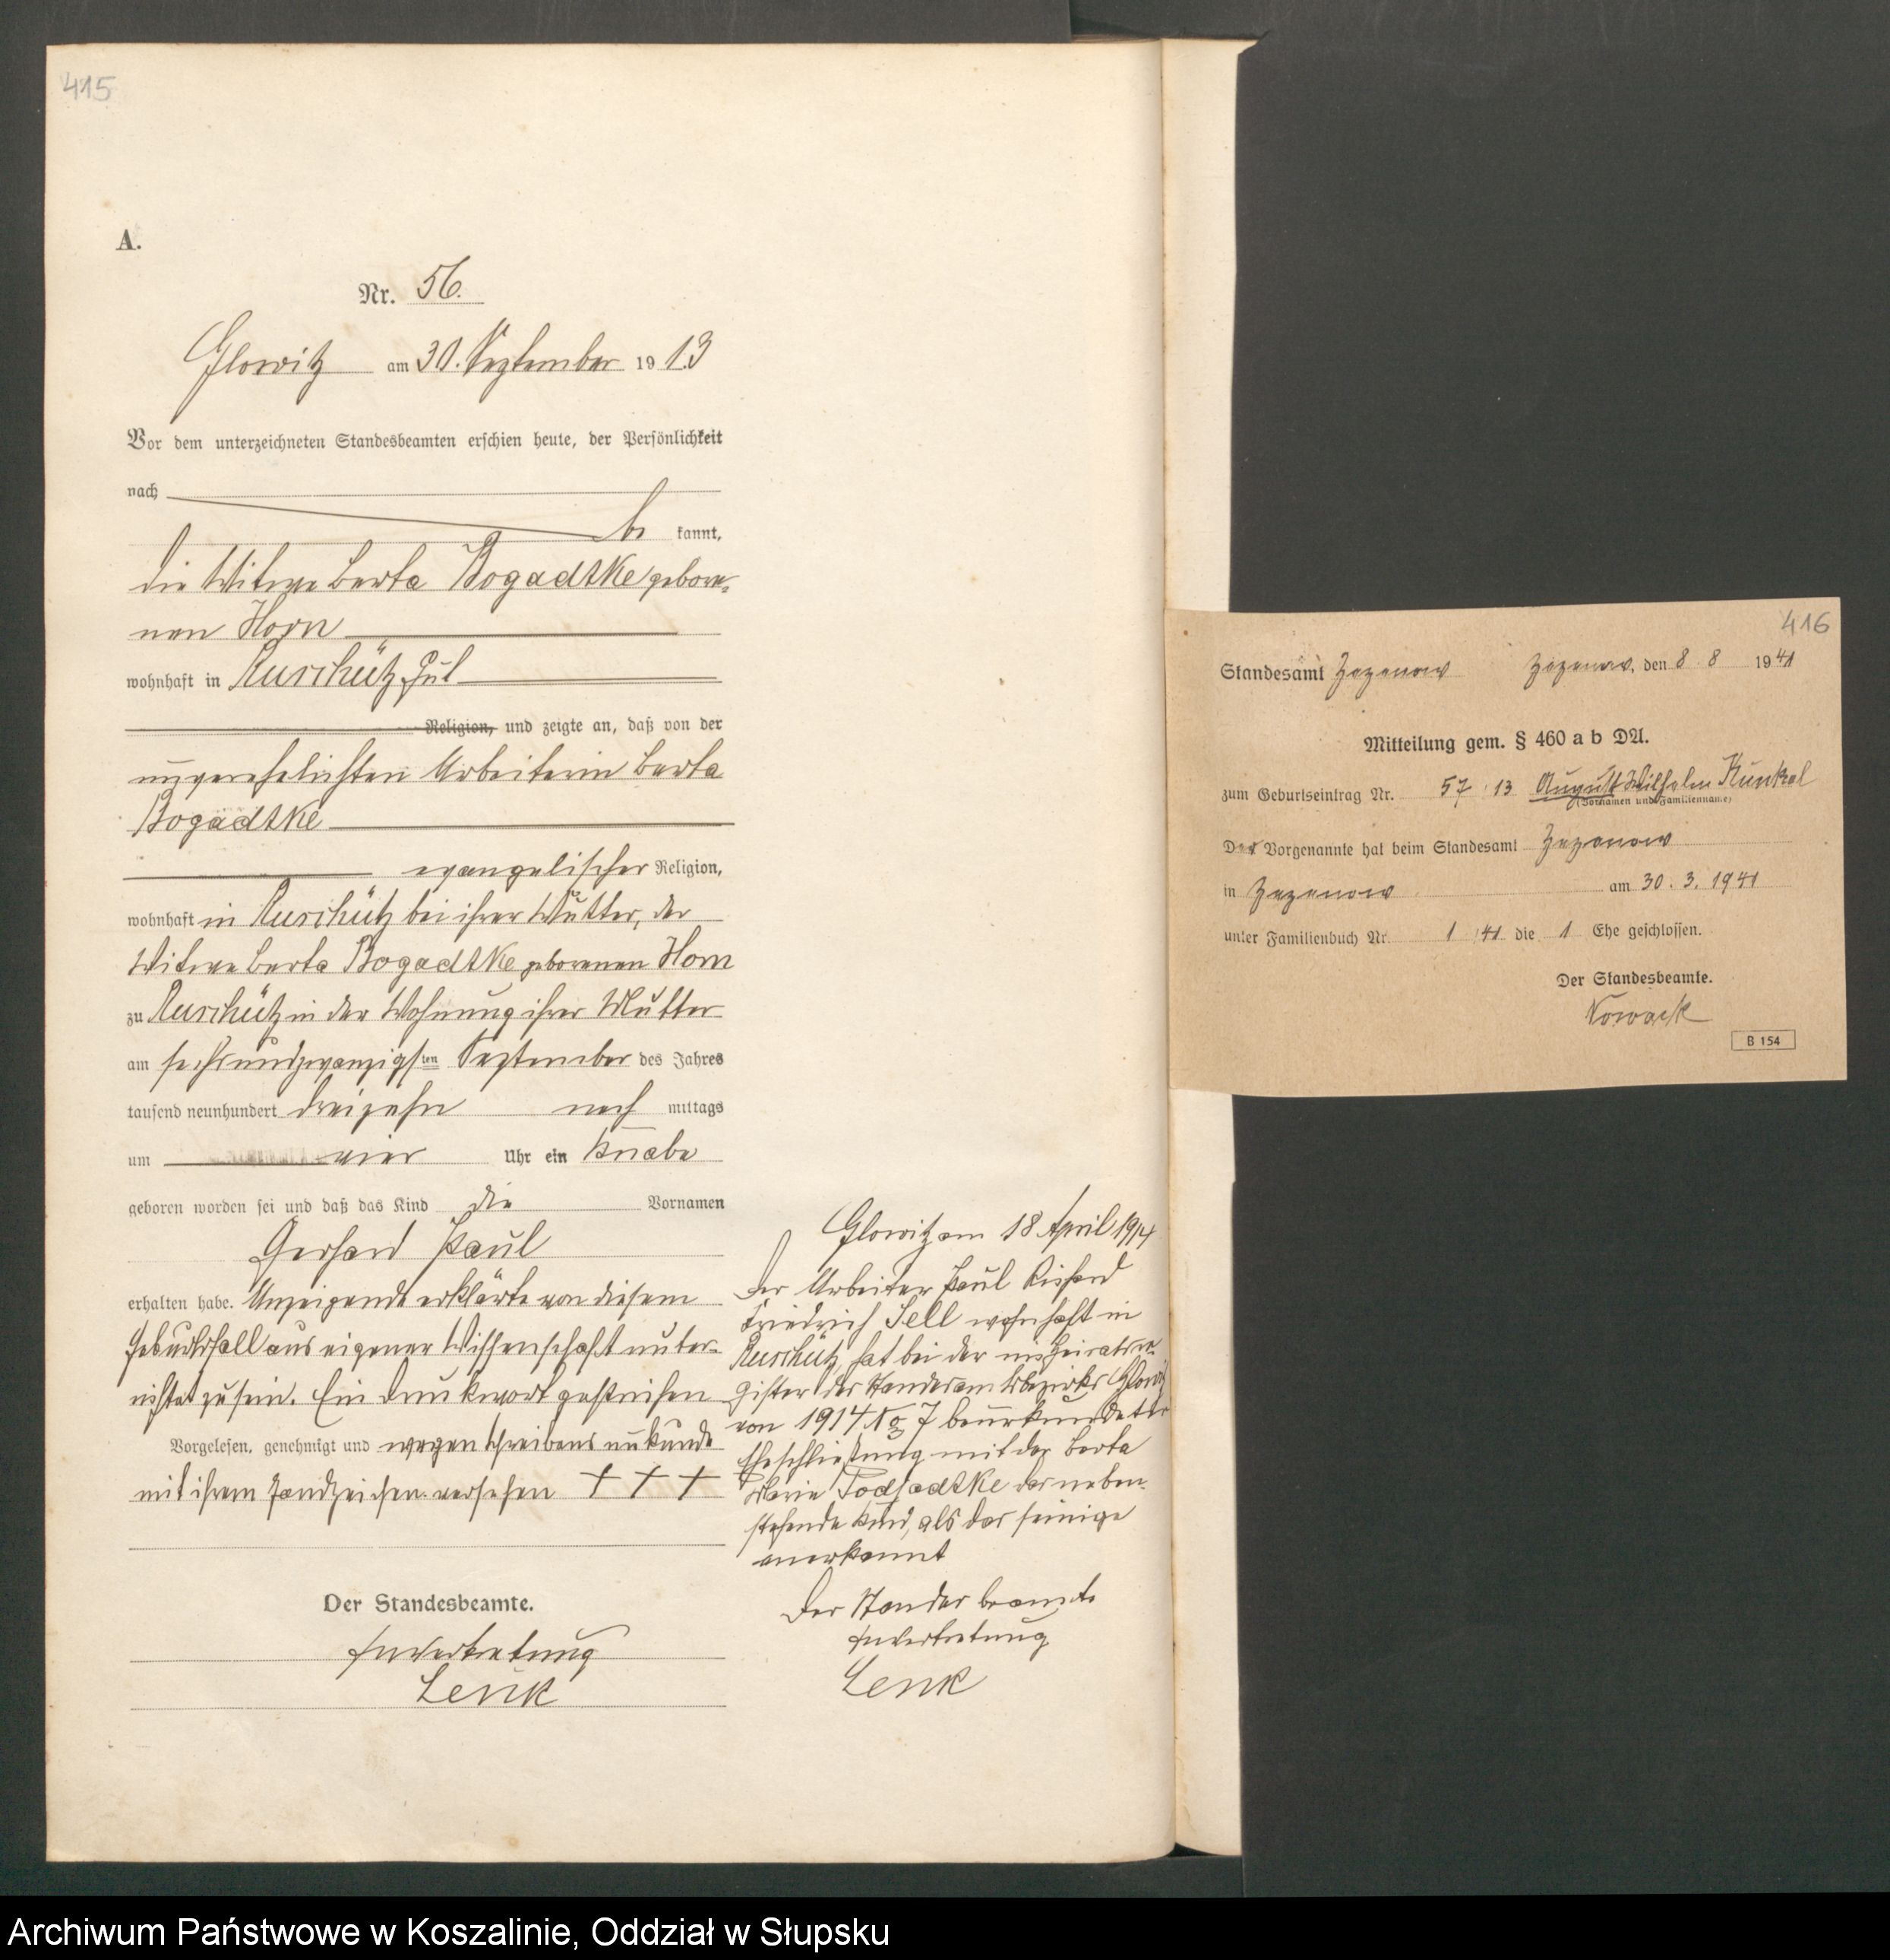 415
A.
Nr. 56.
Glowitz am 30. September 1913
Vor dem unterzeichneten Standesbeamten erschien heute, der Persönlichkeit
nach
be kannt,
die Witwe Berta Bogadtke gebore-
nen Horn
wohnhaft in Ruschütz Gut
Religion, und zeigte an, daß von der
unverehelichten Arbeiterin Berta
Bogadtke
evangelischer Religion,
wohnhaft in Ruschütz bei ihrer Mutter, der
Witwe Berta Bogadtke geborenen Horn
zu Ruschütz in der Wohnung ihrer Mutter
am sechsundzwanzigsten September des Jahres
tausend neunhundert dreizehn nach mittags
um vier Uhr ein Knabe
geboren worden sei und daß das Kind die Vornamen
Gerhard Paul
erhalten habe. Anzeigende erklärte von diesem
Geburtsfall aus eigener Wissenschaft unter-
richtet zu sein. Ein Druckwort gestrichen
Vorgelesen, genehmigt und wegen Schreibens unkunde
mit ihrem Handzeichen versehen + + +
Der Standesbeamte.
In Vertretung
Lenk
Glowitz am 18 April 1914
Der Arbeiter Paul Richard
Friedrich Sell wohnhaft in
Ruschütz, hat bei der im Heiratsre-
gister des Standesamtsbezirks Glowitz
von 1914 No 7 beurkundeten
Eheschließung mit der Berta
Marie das neben-
stehende Kind, als das seinige
anerkannt
Der Standesbeamte
In Vertretung
Lenk
416
Standesamt Zezenow Zezenow, den 8. 8. 1941
Mitteilung gem. § 460 a b DA.
zum Geburtseintrag Nr. 57/13 August Wilhelm Kunkel
(Vornamen und Familienname)
Der Vorgenannte hat beim Standesamt Zezenow
in Zezenow am 30. 3. 1941
unter Familienbuch Nr. 1/41 die 1 Ehe geschlossen.
Der Standesbeamte.
Nowack
B 154
Archiwum Państwowe w Koszalinie, Oddział w Słupsku